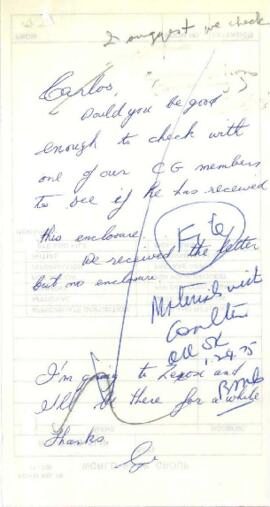 I suggest we check
Carlos,
Could you be good
enough to check with
one of our CG members
to see if he has received
this enclosure.
We received the letter
but no enclosure
File
Materials with
Coulter
all OK
1.24.75
I'm going to and
I'll be there for a while
Thanks
WORLD GROUP